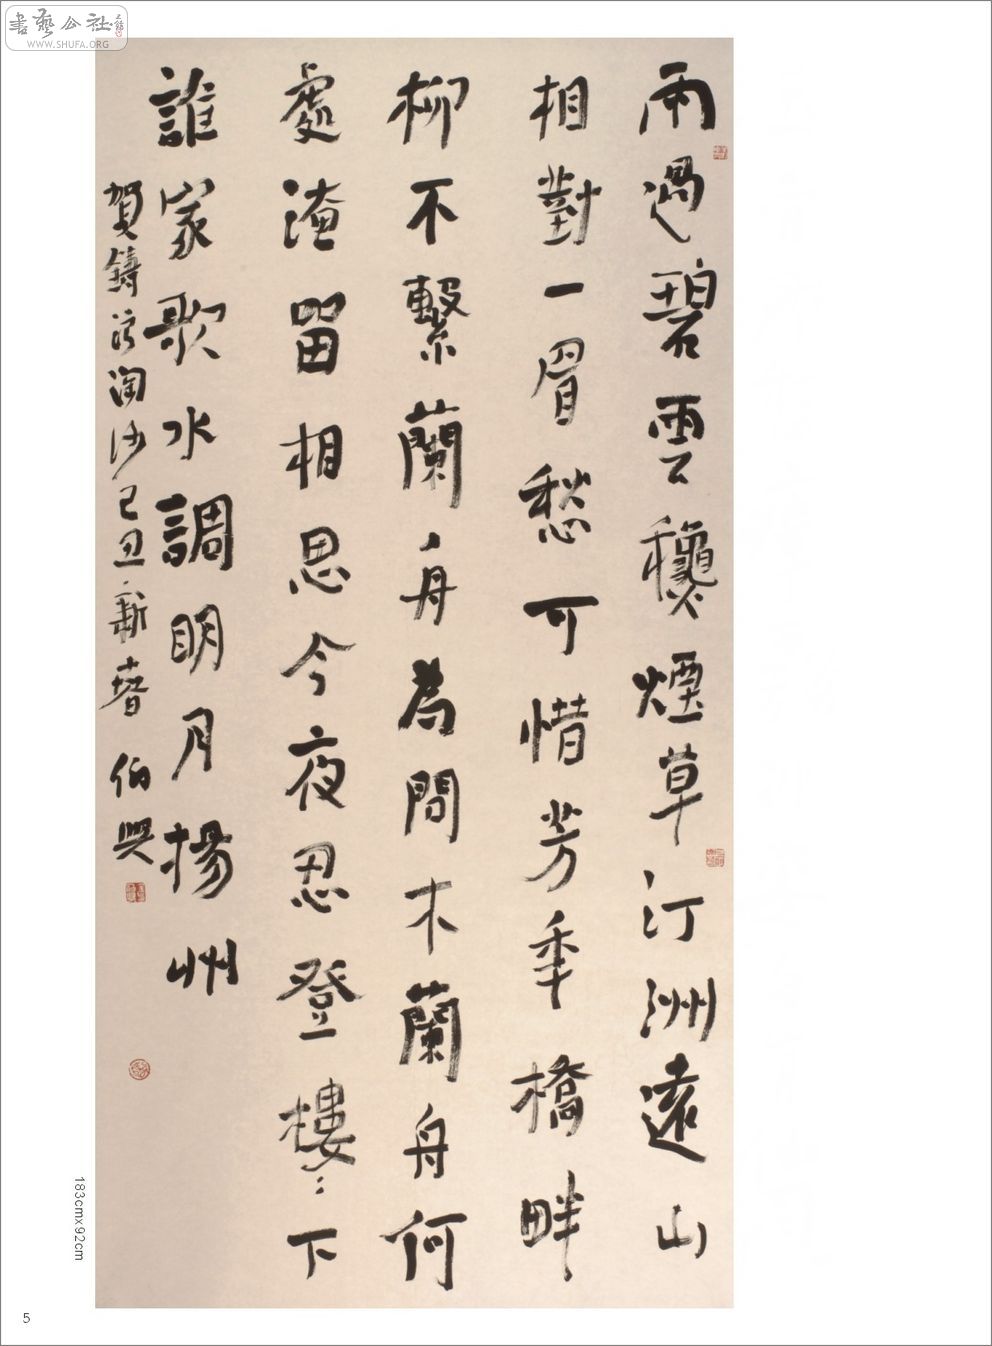 書藝公社
WWW.SHUFA.ORG
雨過碧雲龝煙草汀洲遠山
相對一眉愁可惜芳年橋畔
柳不繫蘭舟為問木蘭舟何
處淹留相思今夜忍登樓〻下
誰家歌水調明月揚州
賀鑄浪淘沙己丑新春 伯興
183cmx92cm
5